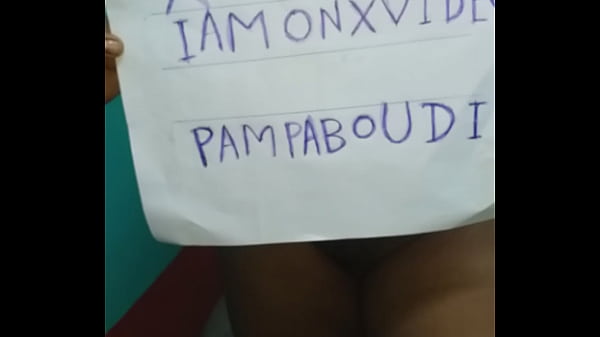 I AM ON XVIDE
PAMPABOUDI